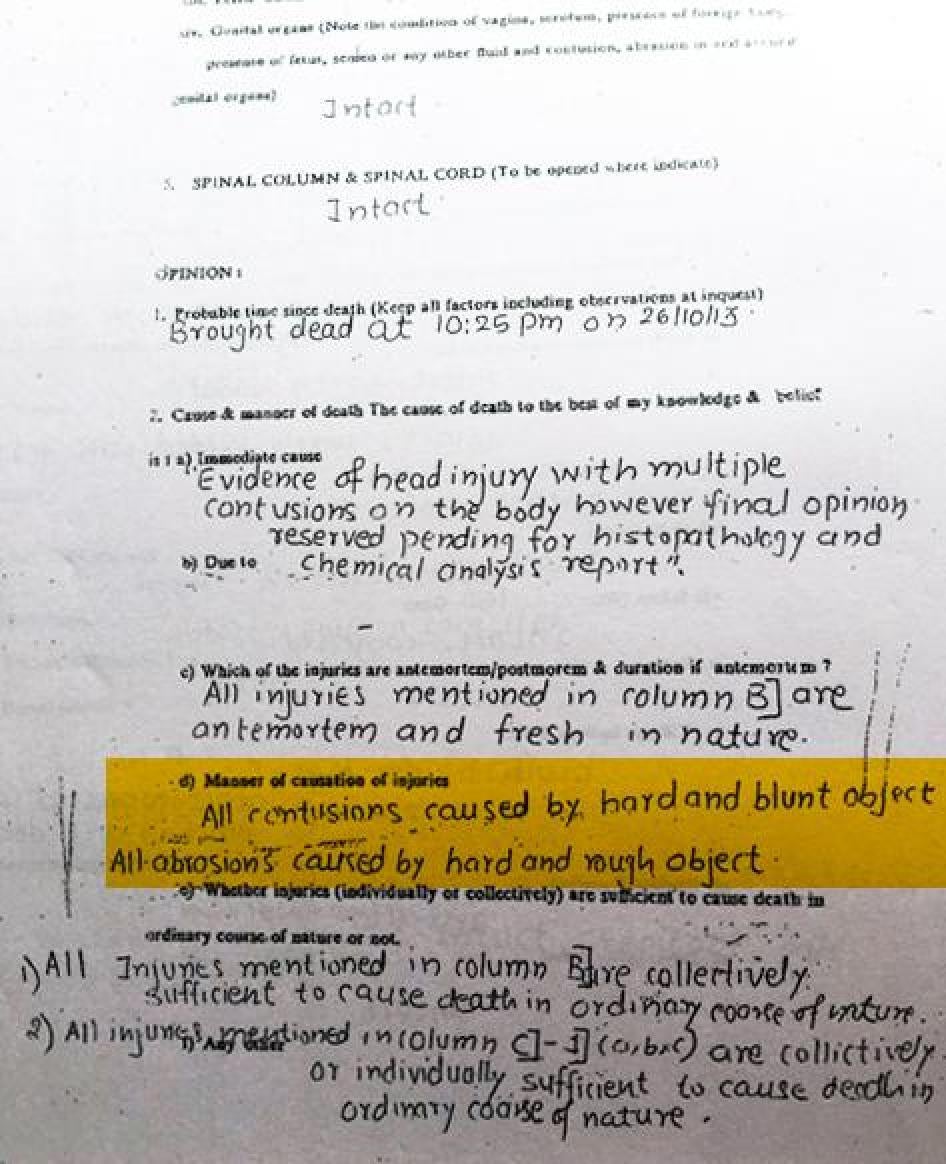 Genital organs (Note the condition of vagina, scrotum, presence of foreign
presence of fetus, semen or any other fluid and contusion, abrasion in and around
genital organs)
Intact
5. SPINAL COLUMN & SPINAL CORD (To be opened where indicate)
Intact
OPINION :
1. Probable time since death (Keep all factors including observations at inquest)
Brought dead at 10:25 pm on 26/10/13
2. Cause & manner of death The cause of death to the best of my knowledge & belief
is : a) Immediate cause
"Evidence of head injury with multiple
contusions on the body however final opinion
reserved pending for histopathology and
b) Due to Chemical analysis report".
-
c) Which of the injuries are antemortem/postmorem & duration if antemortum ?
All injuries mentioned in column B] are
antemortem and fresh in nature.
d) Manner of causation of injuries
All contusions caused by hard and blunt object
All abrosions caused by hard and rough object
e) Whether injuries (individually or collectively) are sufficient to cause death in
ordinary course of nature or not.
1) All Injuries mentioned in column B] are collectively
sufficient to cause death in ordinary coorse of nature.
2) All injuries mentioned in column C]-1] (a,b,c) are collictively
f) Any other
or individually sufficient to cause death in
ordinary coorse of nature.